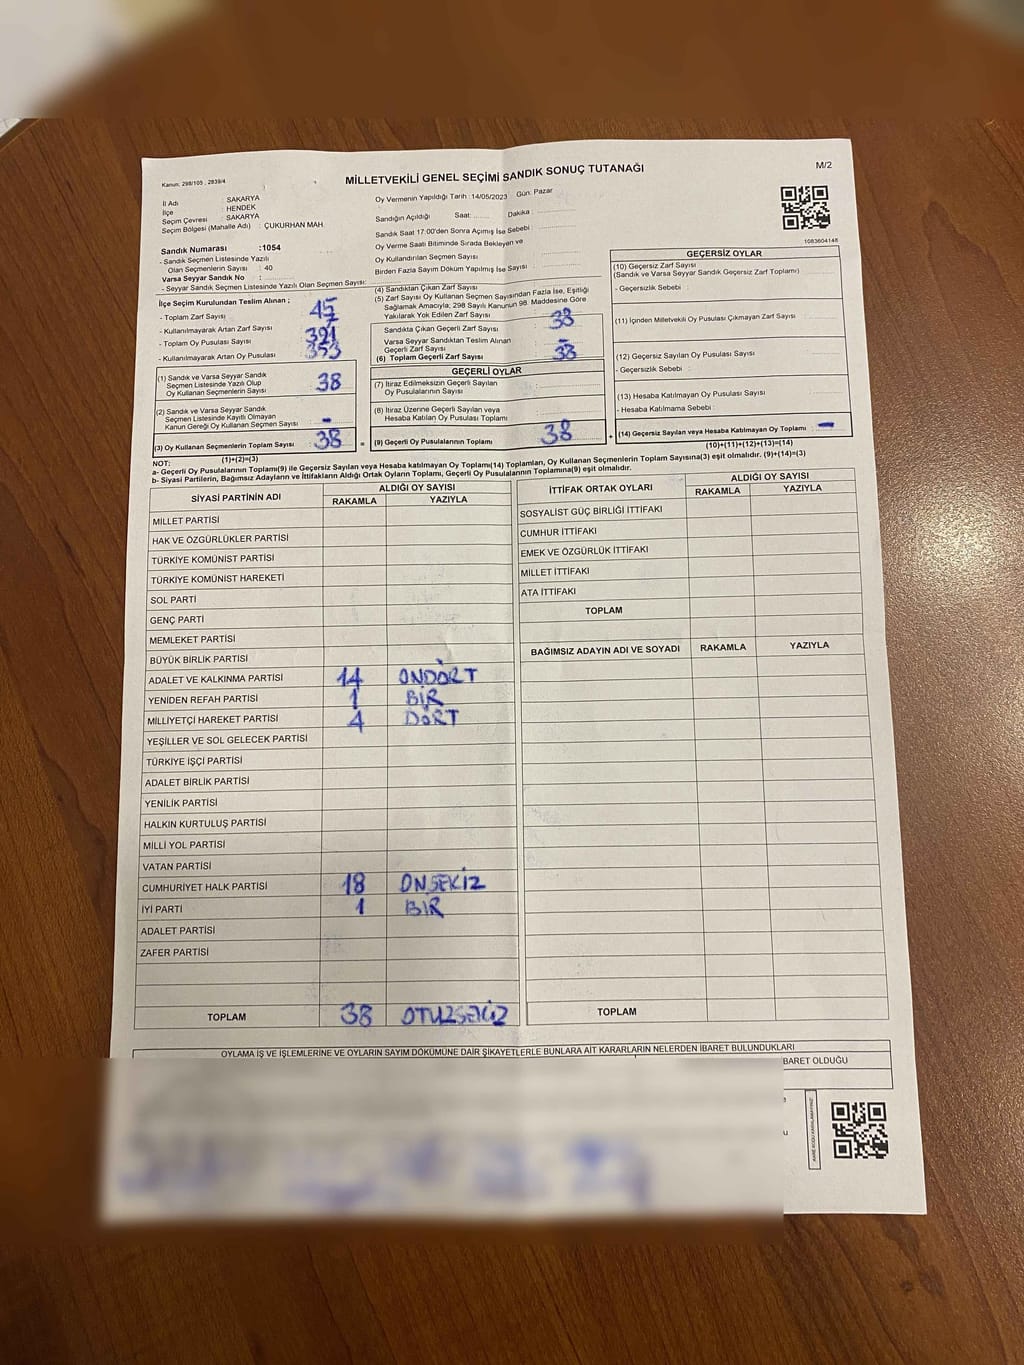 M/2
MİLLETVEKİLİ GENEL SEÇİMİ SANDIK SONUÇ TUTANAĞI
Kanun: 298/105 , 2839/4
İl Adı : SAKARYA
İlçe : HENDEK
Seçim Çevresi : SAKARYA
Seçim Bölgesi (Mahalle Adı) : ÇUKURHAN MAH.
Sandık Numarası :1054
- Sandık Seçmen Listesinde Yazılı
Olan Seçmenlerin Sayısı : 40
Varsa Seyyar Sandık No :
- Seyyar Sandık Seçmen Listesinde Yazılı Olan Seçmen Sayısı:
Oy Vermenin Yapıldığı Tarih :14/05/2023 Gün: Pazar
Sandığın Açıldığı Saat: Dakika :
Sandık Saat 17:00'den Sonra Açılmış İse Sebebi :
Oy Verme Saati Bitiminde Sırada Bekleyen ve
Oy Kullandırılan Seçmen Sayısı :
Birden Fazla Sayım Döküm Yapılmış İse Sayısı :
1083604148
İlçe Seçim Kurulundan Teslim Alınan ;
- Toplam Zarf Sayısı : 45
- Kullanılmayarak Artan Zarf Sayısı : 7
- Toplam Oy Pusulası Sayısı :
- Kullanılmayarak Artan Oy Pusulası : 353
(1) Sandık ve Varsa Seyyar Sandık
Seçmen Listesinde Yazılı Olup
Oy Kullanan Seçmenlerin Sayısı : 38
(2) Sandık ve Varsa Seyyar Sandık
Seçmen Listesinde Kayıtlı Olmayan
Kanun Gereği Oy Kullanan Seçmen Sayısı : -
(3) Oy Kullanan Seçmenlerin Toplam Sayısı : 38
(1)+(2)=(3)
(4) Sandıktan Çıkan Zarf Sayısı
(5) Zarf Sayısı Oy Kullanan Seçmen Sayısından Fazla İse, Eşitliği
Sağlamak Amacıyla; 298 Sayılı Kanunun 98. Maddesine Göre
Yakılarak Yok Edilen Zarf Sayısı :
Sandıkta Çıkan Geçerli Zarf Sayısı : 38
Varsa Seyyar Sandıktan Teslim Alınan
Geçerli Zarf Sayısı : -
(6) Toplam Geçerli Zarf Sayısı : 38
GEÇERLİ OYLAR
(7) İtiraz Edilmeksizin Geçerli Sayılan
Oy Pusulalarının Sayısı :
(8) İtiraz Üzerine Geçerli Sayılan veya
Hesaba Katılan Oy Pusulası Toplamı :
= (9) Geçerli Oy Pusulalarının Toplamı : 38
GEÇERSİZ OYLAR
(10) Geçersiz Zarf Sayısı
(Sandık ve Varsa Seyyar Sandık Geçersiz Zarf Toplamı) :
- Geçersizlik Sebebi :
(11) İçinden Milletvekili Oy Pusulası Çıkmayan Zarf Sayısı :
(12) Geçersiz Sayılan Oy Pusulası Sayısı :
- Geçersizlik Sebebi :
(13) Hesaba Katılmayan Oy Pusulası Sayısı :
- Hesaba Katılmama Sebebi :
+ (14) Geçersiz Sayılan veya Hesaba Katılmayan Oy Toplamı : -
(10)+(11)+(12)+(13)=(14)
NOT:
a- Geçerli Oy Pusulalarının Toplamı(9) ile Geçersiz Sayılan veya Hesaba katılmayan Oy Toplamı(14) Toplamları, Oy Kullanan Seçmenlerin Toplam Sayısına(3) eşit olmalıdır. (9)+(14)=(3)
b- Siyasi Partilerin, Bağımsız Adayların ve İttifakların Aldığı Ortak Oyların Toplamı, Geçerli Oy Pusulalarının Toplamına(9) eşit olmalıdır.
SİYASİ PARTİNİN ADI ALDIĞI OY SAYISI
RAKAMLA YAZIYLA
MİLLET PARTİSİ
HAK VE ÖZGÜRLÜKLER PARTİSİ
TÜRKİYE KOMÜNİST PARTİSİ
TÜRKİYE KOMÜNİST HAREKETİ
SOL PARTİ
GENÇ PARTİ
MEMLEKET PARTİSİ
BÜYÜK BİRLİK PARTİSİ
ADALET VE KALKINMA PARTİSİ 14 ONDÖRT
YENİDEN REFAH PARTİSİ 1 BİR
MİLLİYETÇİ HAREKET PARTİSİ 4 DÖRT
YEŞİLLER VE SOL GELECEK PARTİSİ
TÜRKİYE İŞÇİ PARTİSİ
ADALET BİRLİK PARTİSİ
YENİLİK PARTİSİ
HALKIN KURTULUŞ PARTİSİ
MİLLİ YOL PARTİSİ
VATAN PARTİSİ
CUMHURİYET HALK PARTİSİ 18 ONSEKİZ
İYİ PARTİ 1 BİR
ADALET PARTİSİ
ZAFER PARTİSİ
TOPLAM 38 OTUZSEKİZ
İTTİFAK ORTAK OYLARI ALDIĞI OY SAYISI
RAKAMLA YAZIYLA
SOSYALİST GÜÇ BİRLİĞİ İTTİFAKI
CUMHUR İTTİFAKI
EMEK VE ÖZGÜRLÜK İTTİFAKI
MİLLET İTTİFAKI
ATA İTTİFAKI
TOPLAM
BAĞIMSIZ ADAYIN ADI VE SOYADI RAKAMLA YAZIYLA
TOPLAM
OYLAMA İŞ VE İŞLEMLERİNE VE OYLARIN SAYIM DÖKÜMÜNE DAİR ŞİKAYETLERLE BUNLARA AİT KARARLARIN NELERDEN İBARET BULUNDUKLARI
BARET OLDUĞU